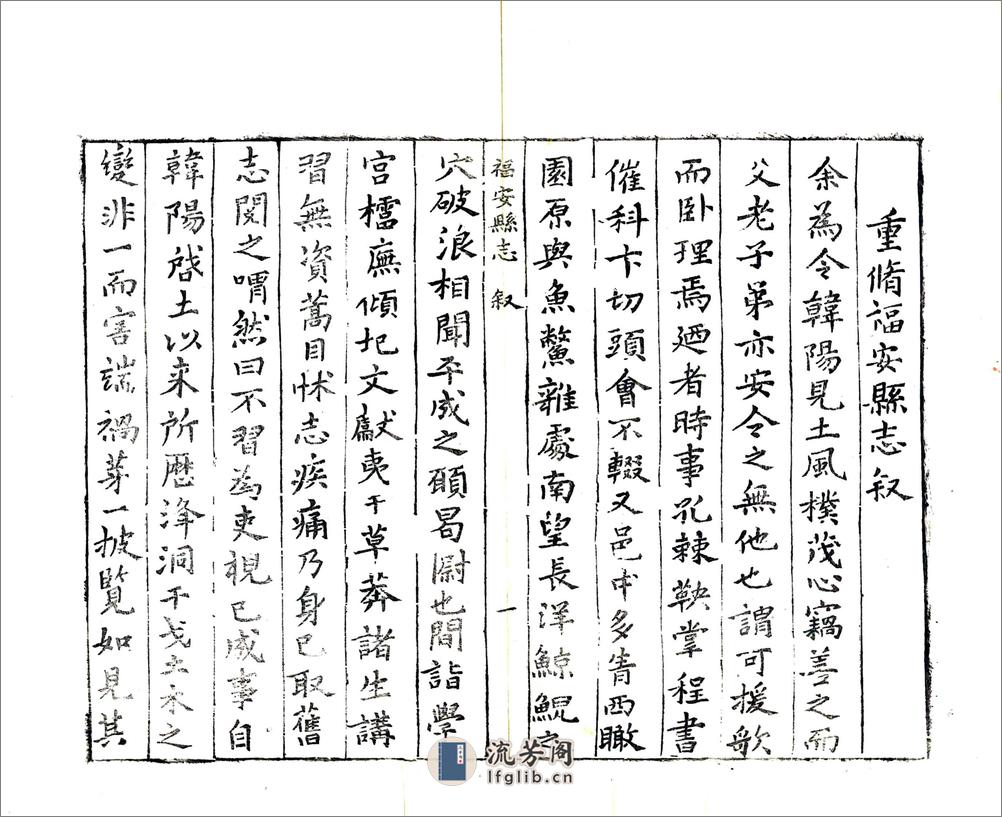 重脩福安縣志叙
余為令韓陽見土風樸茂心竊善之而
父老子弟亦安令之無他也謂可援歌
而卧理焉廼者時事孔棘鞅掌程書
催科卞切頭會不輟又邑中多眚西瞰
園原與魚鱉雜處南望長洋鯨鯢之
福安縣志 叙 一
穴破浪相聞平成之碩曷尉也間詣學
宮櫺廡傾圯文獻夷于草莽諸生講
習無資蒿目怵志疾痛乃身已取舊
志閱之喟然曰不習為吏視已成事自
韓陽啓土以来所歴洚洞干戈土木之
變非一而害端禍芽一披覧如見其
流芳阁
lfglib.cn